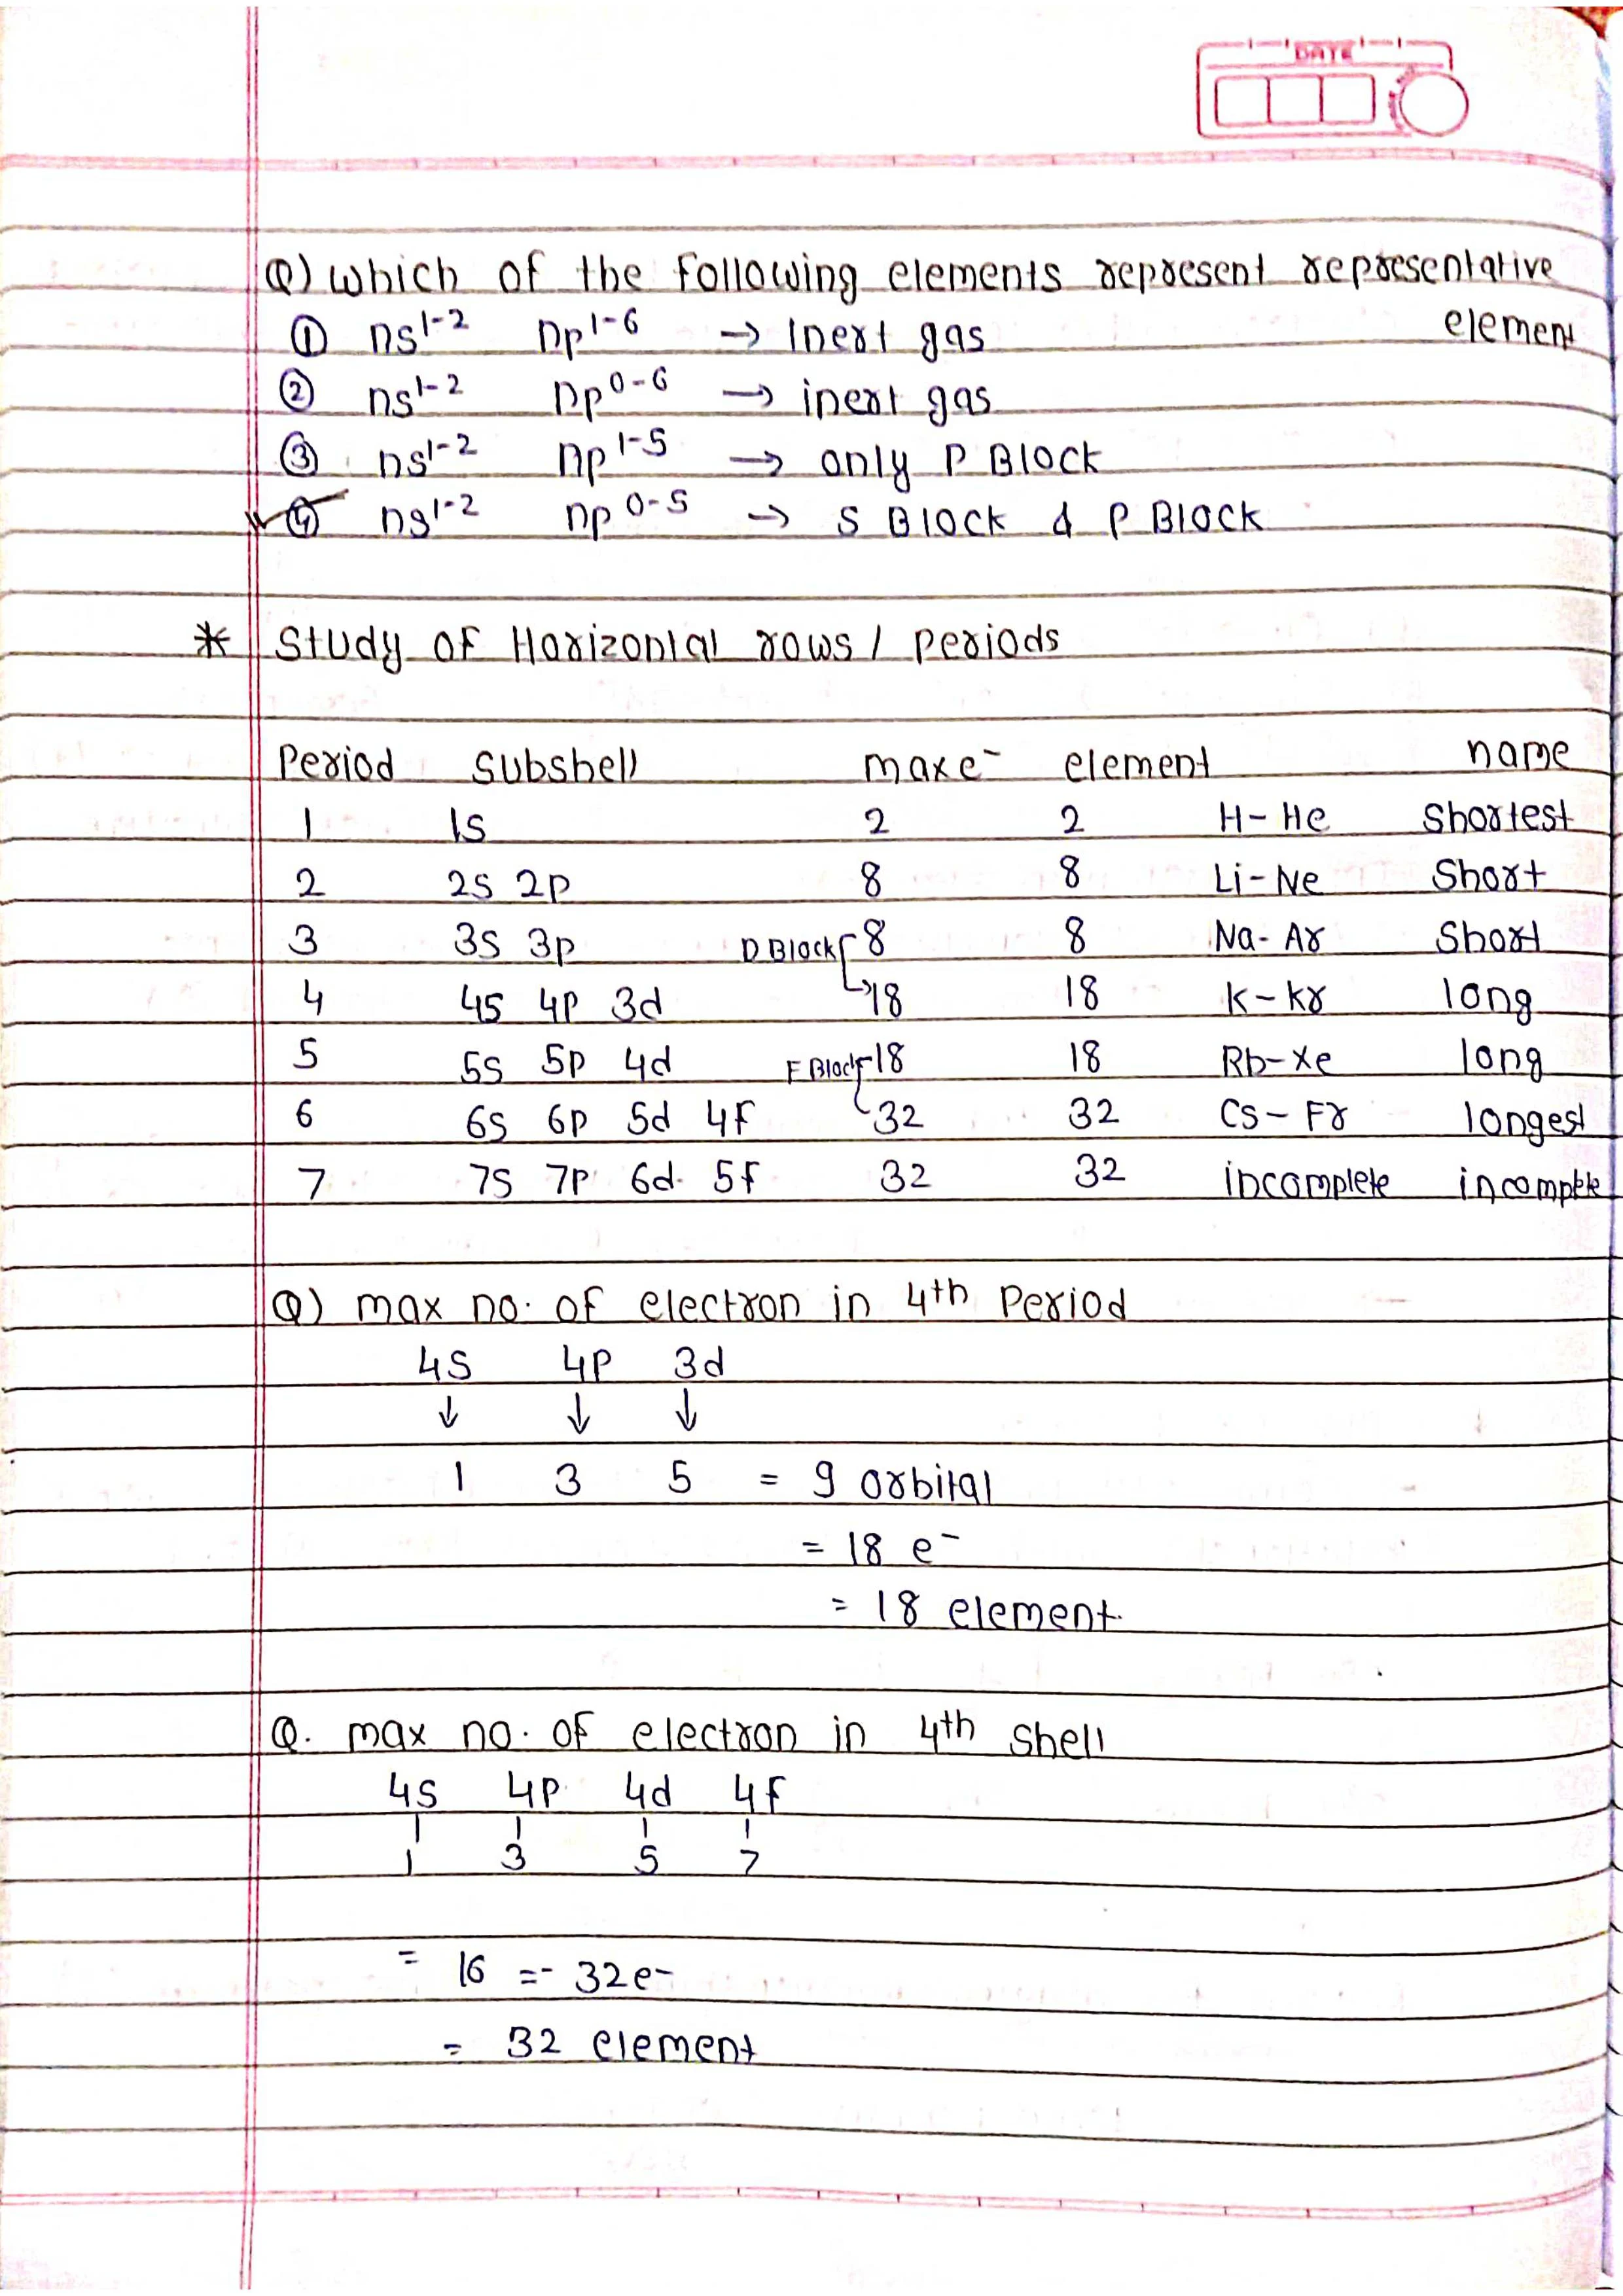 DATE
Q) which of the following elements represent representative element
① ns¹⁻² np¹⁻⁶ → Inert gas
② ns¹⁻² np⁰⁻⁶ → inert gas
③ ns¹⁻² np¹⁻⁵ → only P Block
④ ns¹⁻² np⁰⁻⁵ → S Block & P Block
* Study of Horizontal rows / periods
Period subshell max e⁻ element name
1 1s 2 2 H-He Shortest
2 2s 2p 8 8 Li-Ne Short
3 3s 3p D Block 8 8 Na-Ar Short
4 4s 4p 3d →18 18 K-Kr long
5 5s 5p 4d F Block 18 18 Rb-Xe long
6 6s 6p 5d 4f 32 32 Cs-Fr longest
7 7s 7p 6d 5f 32 32 incomplete incomplete
Q) max no. of electron in 4th Period
4s 4p 3d
↓ ↓ ↓
1 3 5 = 9 orbital
= 18 e⁻
= 18 element.
Q. max no. of electron in 4th shell
4s 4p 4d 4f
1 3 5 7
= 16 =- 32e-
= 32 element